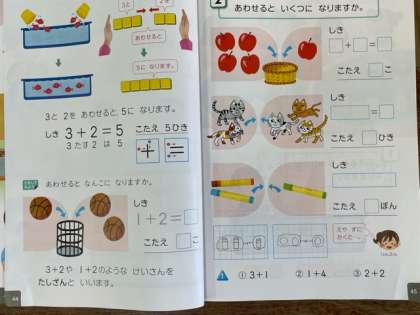 3と
2を
あわせると
5に なります。
3と 2を あわせると 5に なります。
しき 3+2=5 こたえ 5ひき
3 たす 2 は 5
+ =
あわせると なんこに なりますか。
しき
1+2=
こたえ こ
3+2や 1+2のような けいさんを
たしざんと いいます。
44
2 あわせると いくつに なりますか。
しき
+ =
こたえ こ
しき
=
こたえ ひき
しき
こたえ ぽん
えや ずに
かくと…
1 ① 3+1 ② 1+4 ③ 2+2
45